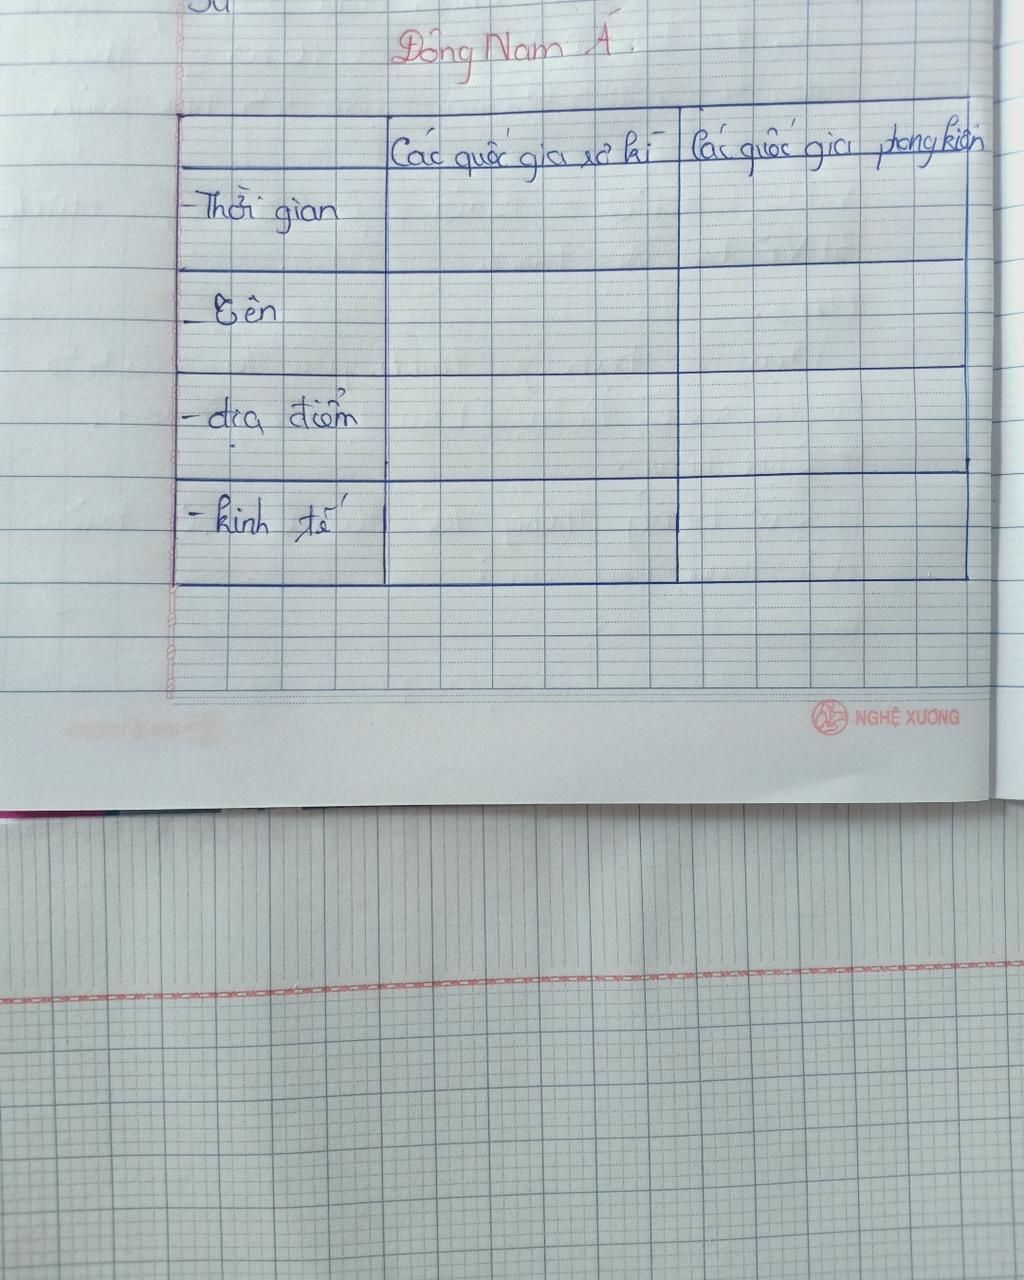 Đông Nam Á.
Các quốc gia sơ kì
Các quốc gia phong kiện
- Thời gian
- Tên
- địa điểm
- kinh tế
NGHỆ XƯƠNG